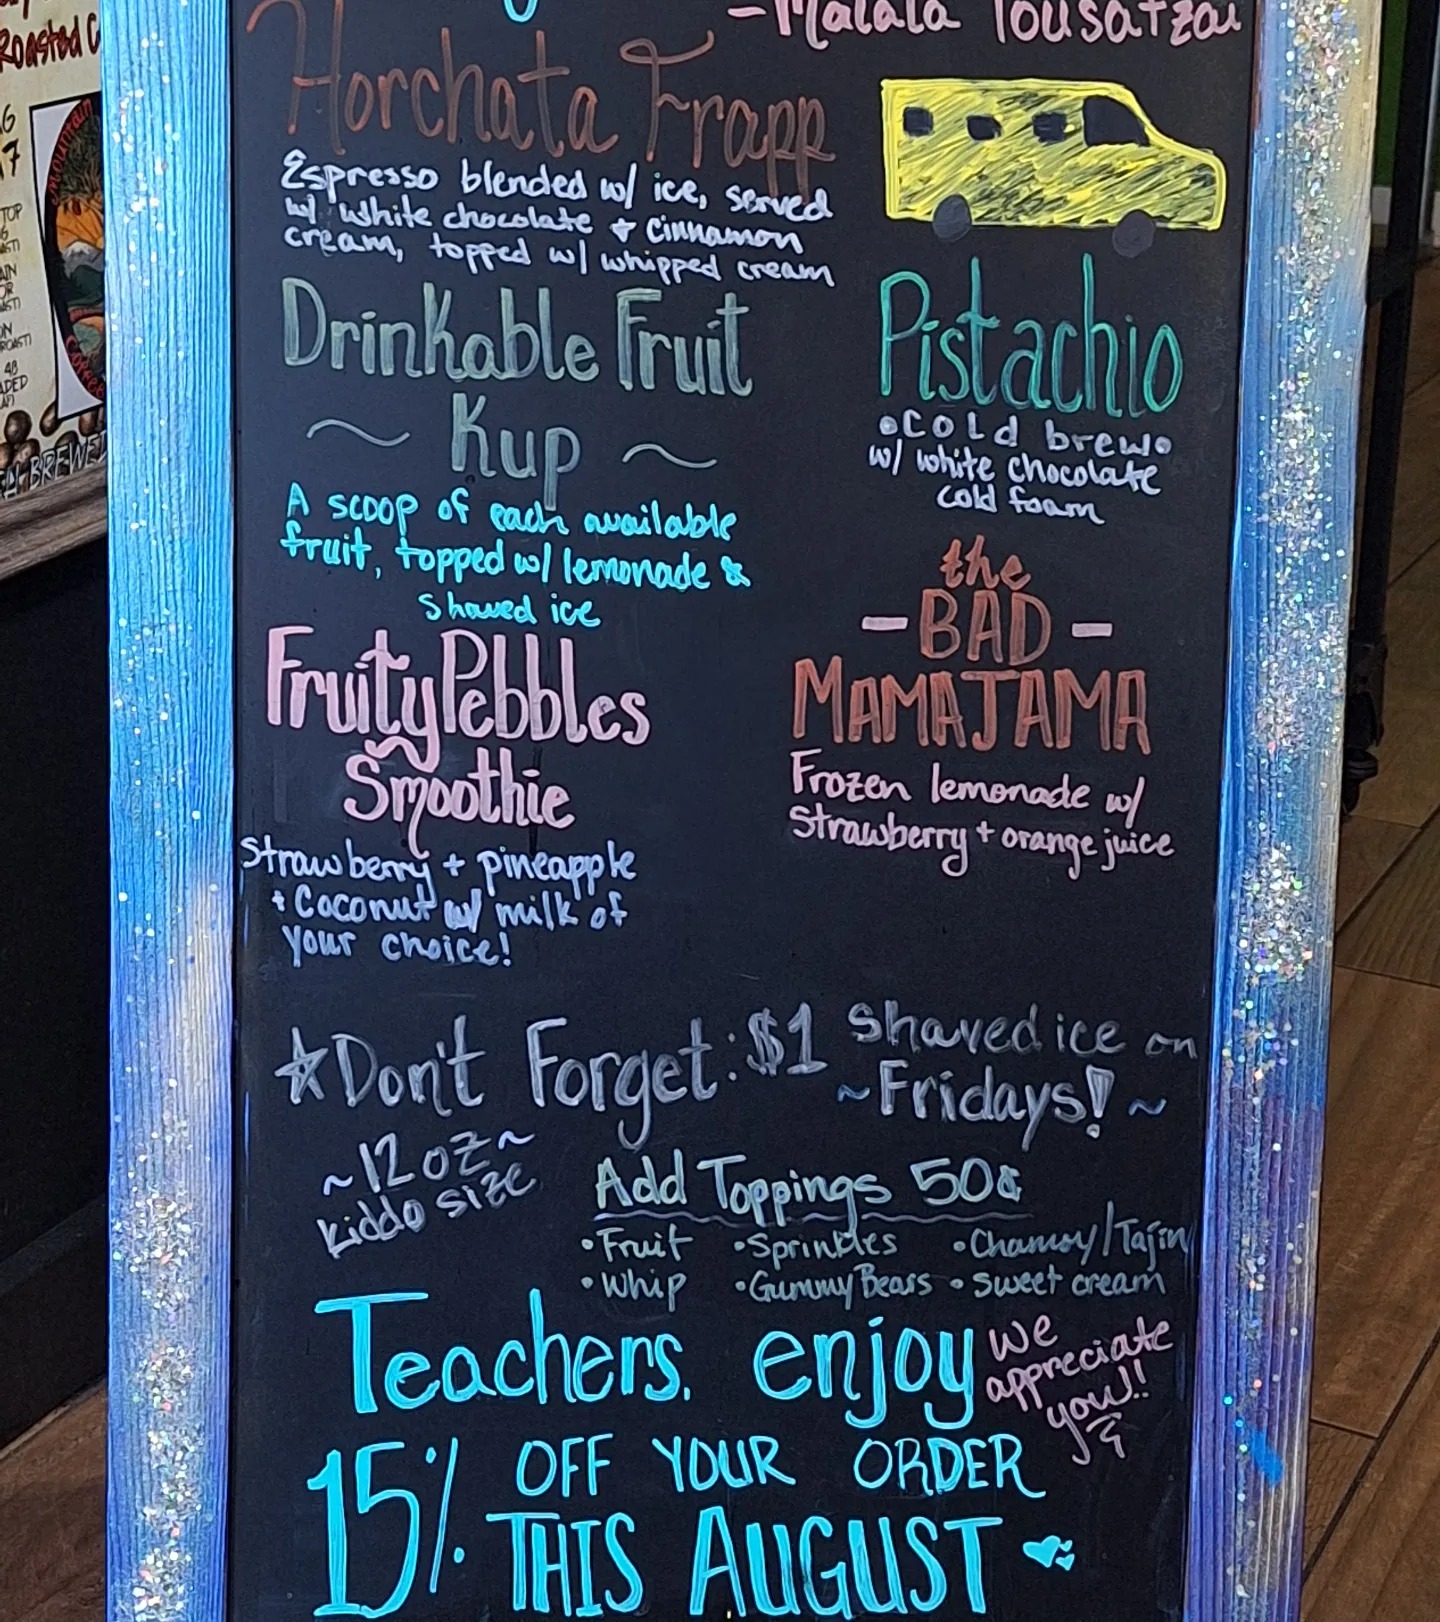 -Malala Yousafzai
Horchata Frapp
Espresso blended w/ ice, served
w/ white chocolate + cinnamon
cream, topped w/ whipped cream
Drinkable Fruit
~ Kup ~
A scoop of each available
fruit, topped w/ lemonade &
shaved ice
Fruity Pebbles
Smoothie
Strawberry + pineapple
+ Coconut w/ milk of
your choice!
Pistachio
•Cold brew•
w/ white chocolate
cold foam
the
- BAD -
MAMAJAMA
Frozen lemonade w/
Strawberry + orange juice
☆Don't Forget: $1 Shaved ice on
~Fridays! ~
~12oz~
kiddo size
Add Toppings 50¢
•Fruit •Sprinkles •Chamoy/Tajin
•Whip •Gummy Bears •Sweet cream
Teachers, enjoy
15% OFF YOUR ORDER
THIS AUGUST
We
appreciate
you!!
Roasted
MOUNTAIN
COFFEE
BREWED